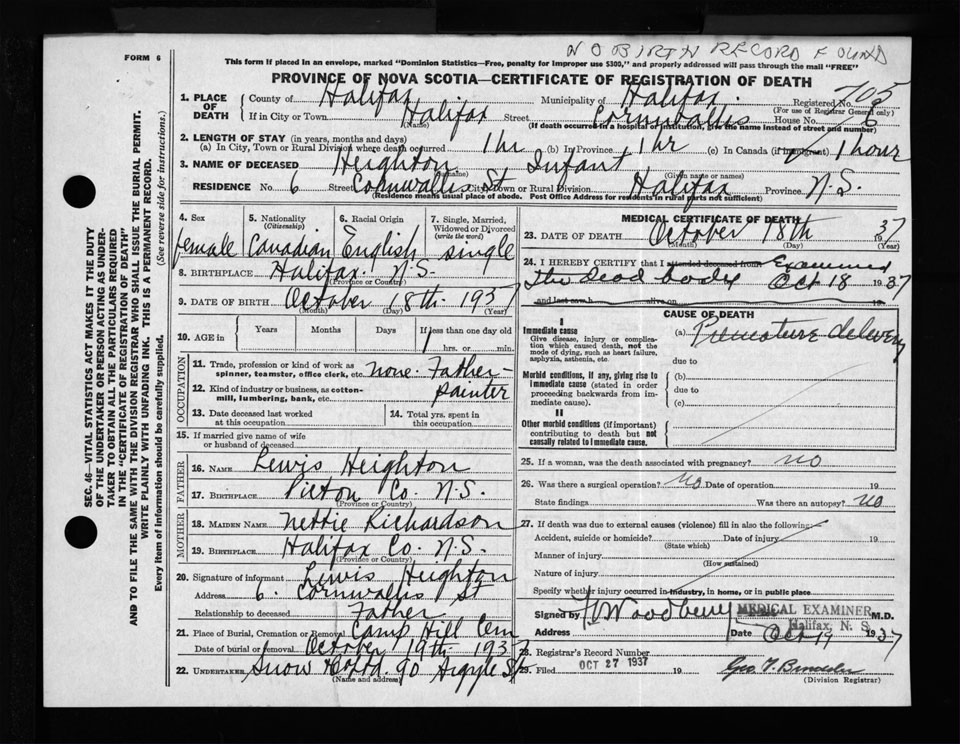 NO BIRTH RECORD FOUND
FORM 6
This form if placed in an envelope, marked "Dominion Statistics—Free, penalty for improper use $300," and properly addressed will pass through the mail "FREE"
PROVINCE OF NOVA SCOTIA—CERTIFICATE OF REGISTRATION OF DEATH
1. PLACE OF DEATH
County of Halifax Municipality of Halifax. Registered No. 705
(For use of Registrar General only)
If in City or Town Halifax Street Cornwallis House No. 6
(Name) (If death occurred in a hospital or institution, give the name instead of street and number)
2. LENGTH OF STAY (in years, months and days)
(a) In City, Town or Rural Division where death occurred 1 hr (b) In Province 1 hr (c) In Canada (if immigrant) 1 hour
3. NAME OF DECEASED Heighton Infant
(Surname) (Given name or names)
RESIDENCE No. 6 Street Cornwallis St City, Town or Rural Division Halifax Province N.S.
(Residence means usual place of abode. Post Office Address for residents in rural parts not sufficient)
4. Sex
female
5. Nationality
(Citizenship)
Canadian
6. Racial Origin
English
7. Single, Married, Widowed or Divorced
(write the word)
single
8. BIRTHPLACE Halifax. N.S.
(Province or Country)
9. DATE OF BIRTH October 18th. 1937
(Month) (Day) (Year)
10. AGE in Years Months Days If less than one day old
1 hrs. or min.
OCCUPATION
11. Trade, profession or kind of work as spinner, teamster, office clerk, etc. none. Father-
12. Kind of industry or business, as cotton-mill, lumbering, bank, etc. painter
13. Date deceased last worked at this occupation
14. Total yrs. spent in this occupation
15. If married give name of wife or husband of deceased
FATHER
16. NAME Lewis Heighton
17. BIRTHPLACE Pictou Co. N.S.
(Province or Country)
MOTHER
18. MAIDEN NAME Nettie Richardson
19. BIRTHPLACE Halifax Co. N.S.
(Province or Country)
20. Signature of informant Lewis Heighton
Address 6. Cornwallis St
Relationship to deceased Father
21. Place of Burial, Cremation or Removal Camp Hill Cem
Date of burial or removal October 19th. 1937
22. UNDERTAKER Snow & Co Ltd. 90 Argyle St.
(Name and address)
MEDICAL CERTIFICATE OF DEATH
23. DATE OF DEATH October 18th 1937
(Month) (Day) (Year)
24. I HEREBY CERTIFY that I attended deceased from Examined
the dead body Oct 18 1937
and last saw h alive on 19
CAUSE OF DEATH
I
Immediate cause
Give disease, injury or complication which caused death, not the mode of dying, such as heart failure, asphyxia, asthenia, etc.
(a) Premature delivery
due to
Morbid conditions, if any, giving rise to immediate cause (stated in order proceeding backwards from immediate cause).
(b)
due to
(c)
II
Other morbid conditions (if important) contributing to death but not causally related to immediate cause.
25. If a woman, was the death associated with pregnancy? no
26. Was there a surgical operation? no Date of operation 19
State findings Was there an autopsy? no
27. If death was due to external causes (violence) fill in also the following:
Accident, suicide or homicide? Date of injury 19
(State which)
Manner of injury
(How sustained)
Nature of injury
Specify whether injury occurred in industry, in home, or in public place
Signed by Woodbury M.D.
MEDICAL EXAMINER
Halifax, N. S.
Address Date Oct 19 1937
28. Registrar's Record Number
29. Filed OCT 27 1937 19
(Division Registrar)
SEC. 46—VITAL STATISTICS ACT MAKES IT THE DUTY
OF THE UNDERTAKER OR PERSON ACTING AS UNDER-
TAKER TO OBTAIN ALL THE PARTICULARS REQUIRED
IN THE "CERTIFICATE OF REGISTRATION OF DEATH"
AND TO FILE THE SAME WITH THE DIVISION REGISTRAR WHO SHALL ISSUE THE BURIAL PERMIT.
WRITE PLAINLY WITH UNFADING INK. THIS IS A PERMANENT RECORD.
Every item of Information should be carefully supplied. (See reverse side for instructions.)